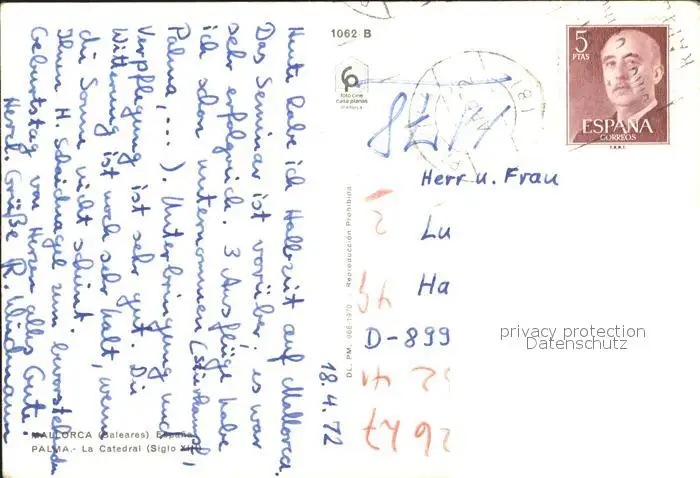 1062 B
5
PTAS
ESPAÑA
CORREOS
F.N.M.T.
foto cine
casa planas
mallorca
Heute habe ich Halbzeit auf Mallorca.
Das Seminar ist vorüber; es war
sehr erfolgreich. 3 Ausflüge habe
ich schon unternommen (Stierkampf,
Palma, ... ). Unterbringung und
Verpflegung ist sehr gut. Die
Witterung ist noch sehr kalt, wenn
die Sonne nicht scheint.
Ihnen H. zum bevorstehenden
Geburtstag von Herzen alles Gute.
Herzl. Grüße R. Wiedmann
18.4.72
Herr u. Frau
Lu
Ha
D-899
privacy protection
Datenschutz
DL. PM. 966-1970 Reproducción Prohibida
2
49
52 41
26 47
MALLORCA (Baleares) España
PALMA.- La Catedral (Siglo XI